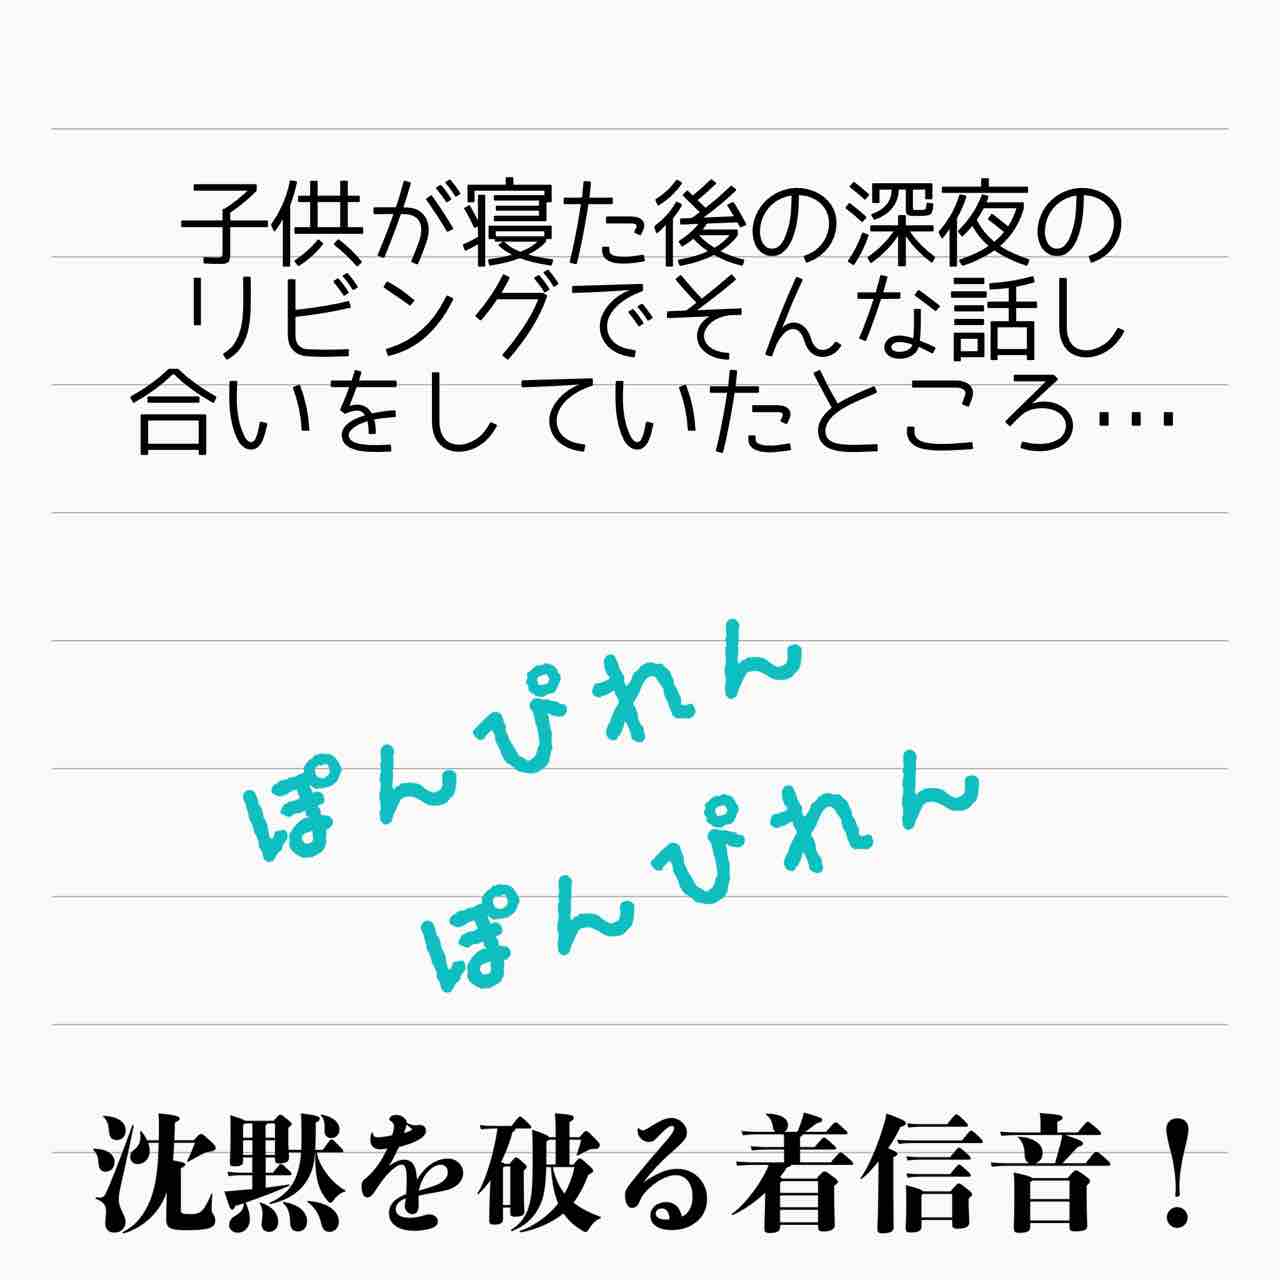 子供が寝た後の深夜の
リビングでそんな話し
合いをしていたところ…
ぽんぴれん
ぽんぴれん
沈黙を破る着信音！